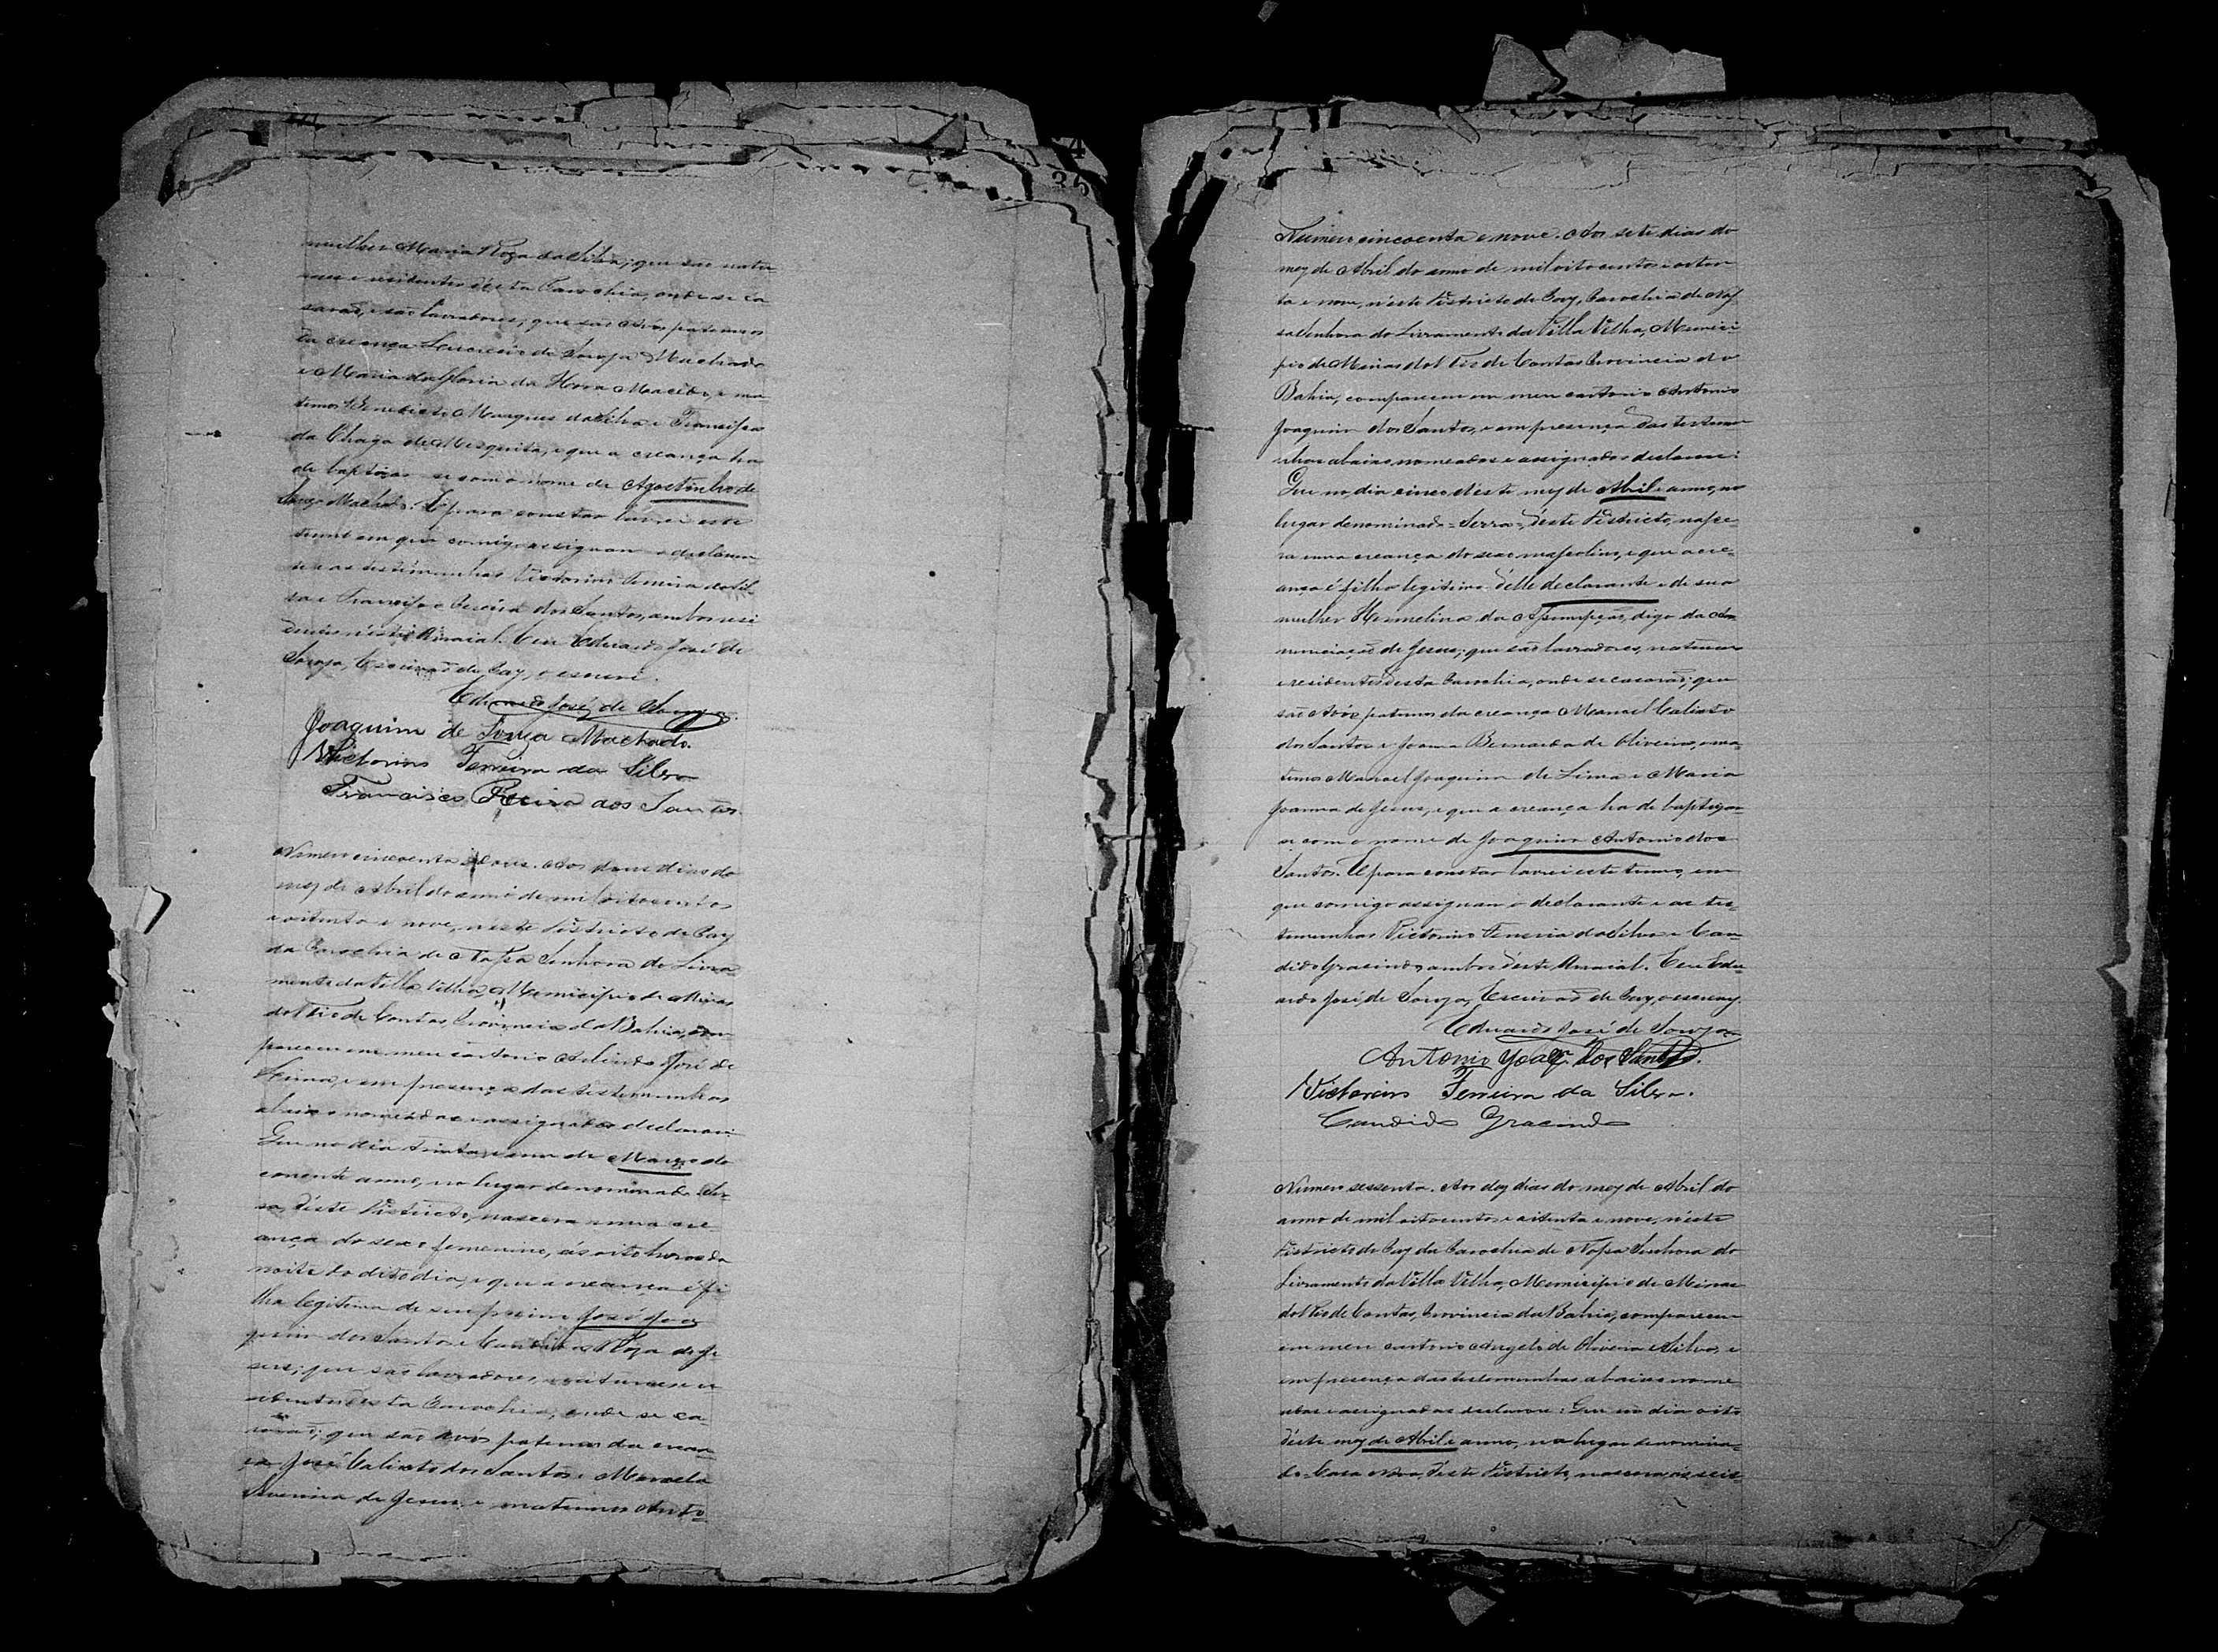 35
mulher Maria Roza da Silva; que são natu
raes e residentes désta Parochia, onde se ca
sarão, e são lavradores; que são Avós paternos
da creança de Souza Machado
e Maria da Gloria da Hora Macêdo, e ma-
ternos Benedicto Marques da Silva e Francisca
da Chaga de Mesquita, e que a creança ha
de baptizar-se com o nome de Agostinho de
Souza Machado. E para constar lavrei este
termo em que comigo assignam o declaran
te e as testimunhas Victorino Ferreira da Sil-
va e Francisco Pereira dos Santos, ambos resi
dentes néste Arraial. Eu Eduardo José de
Souza, Escrivão de Paz, o escrevi.
Eduardo José de Souza
Joaquim de Souza Machado.
Victorino Ferreira da Silva
Francisco Pereira dos Santos.
Numero cincoenta e . Aos dias do
mez de Abril do anno de mil oitocentos
e oitenta e nove, néste Districto de Paz
da Parochia de Nossa Senhora do Livra-
mento da Villa Velha, Municipio de Minas
do Rio de Contas, Provincia da Bahia, com
pareceu em meu cartorio José de
e em presença das testemunhas
abaixo nomeadas e assignadas declarou:
Que no dia trinta e um de Março do
corrente anno, no lugar denominado Ser-
ra, déste Districto, nascera uma cre
ança do sexo femenino, ás oito horas da
noite do dito dia, e que a creança é fi
lha legitima de seu primo José Joa
quim dos Santos e Candida Roza de Je
sus; que são lavradores, naturaes e re
sidentes désta Parochia, onde se ca-
sarão; que são avos paternos da crean
ça José Calixto dos Santos e Manoela
de Jesus e maternos Anto-
Numero cincoenta e nove. Aos sete dias do
mez de Abril do anno de mil oitocentos e oiten
ta e nove, néste Districto de Paz, Parochia de Nos
sa Senhora do Livramento da Villa Velha, Munici
pio de Minas do Rio de Contas, Provincia da
Bahia, compareceu em meu cartorio Antonio
Joaquim dos Santos, e em presença das testemu
nhas abaixo nomeadas e assignadas declarou:
Que no dia cinco déste mez de Abril e anno, no
lugar denominado = Serra = déste Districto, nasce
ra uma creança do sexo masculino, e que a cre-
ança é filho legitimo délle declarante e de sua
mulher Hermelina da Assumpção, digo da An
nunciação de Jesus; que são lavradores, naturaes
e residentes désta Parochia, onde se casarão; que
são Avós paternos da creança Manoel Calixto
dos Santos e Joana Bernarda de Oliveira, e ma-
ternos Manoel Joaquim de Lima e Maria
Joanna de Jesus, e que a creança ha de baptizar-
se com o nome de Joaquim Antonio dos
Santos. E para constar lavrei este termo, em
que comigo assignam o declarante e as tes-
temunhas Victorino Ferreira da Silva e Can-
dido Gracindo, ambos déste Arraial. Eu Edu-
ardo José de Souza, Escrivão de Paz, o escrevy.
Eduardo José de Souza
Antonio Joaqm. dos Santos.
Victorino Ferreira da Silva.
Candido Gracindo
Numero sessenta. Aos dez dias do mez de Abril do
anno de mil oitocentos e oitenta e nove, néste
Districto de Paz da Parochia de Nossa Senhora do
Livramento da Villa Velha, Municipio de Minas
do Rio de Contas, Provincia da Bahia, compareceu
em meu cartorio Angelo de Oliveira e Silva, e
em presença das testemunhas abaixo nome
adas e assignadas declarou: Que no dia oito
déste mez de Abril e anno, no lugar denomina-
do-Casa déste Districto, nascera ás seis